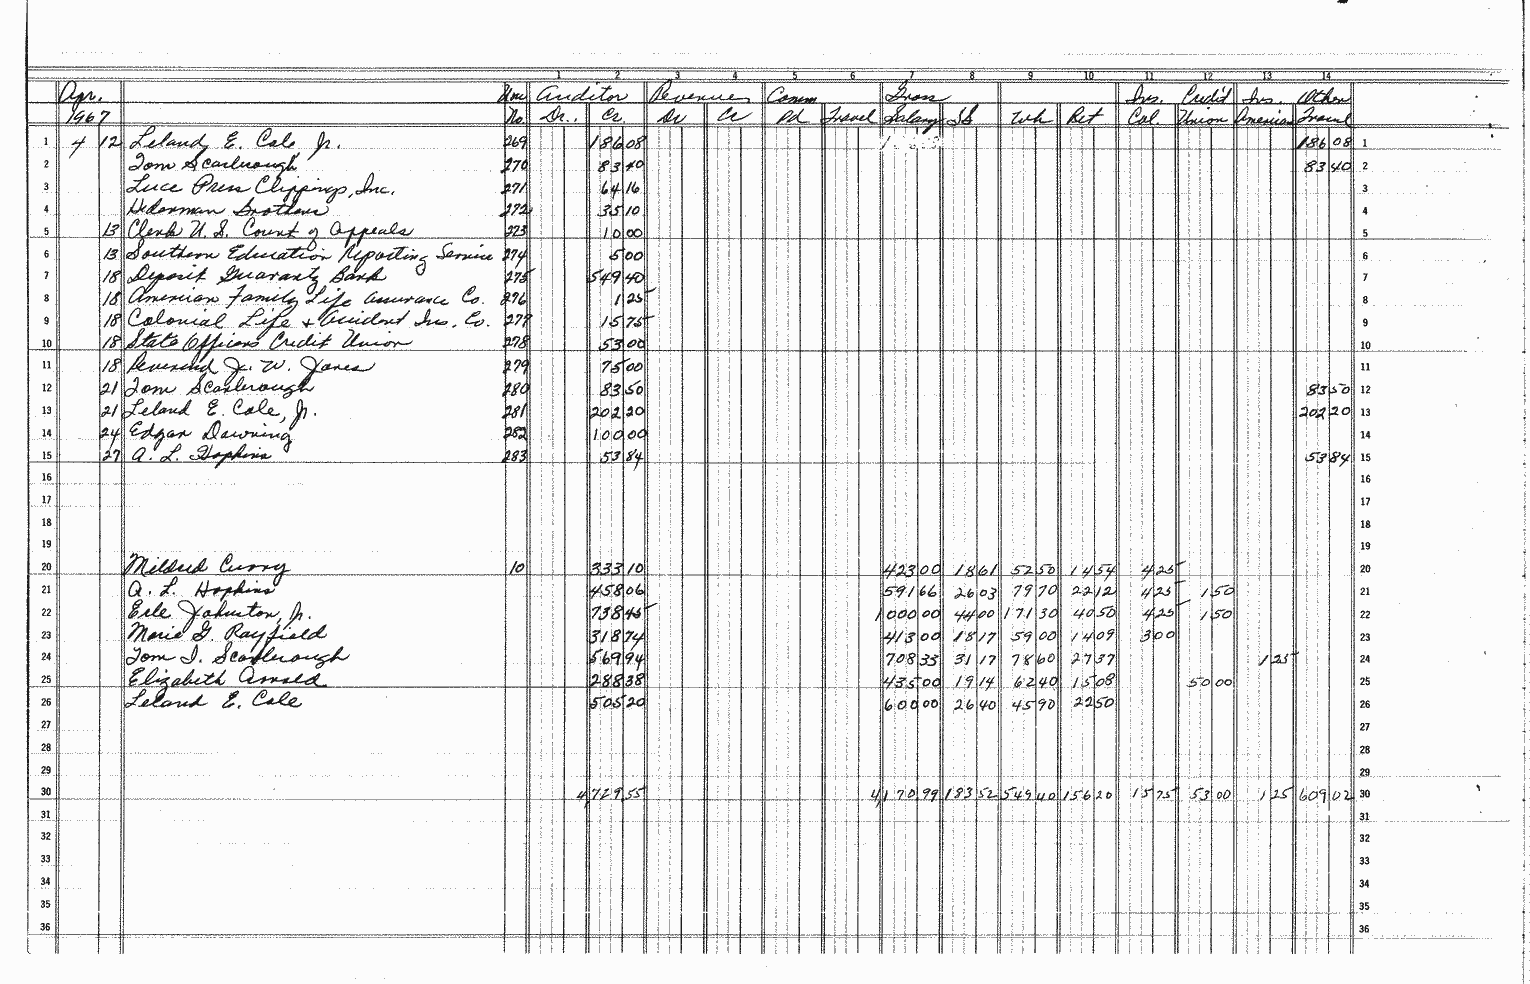 1 2 3 4 5 6 7 8 9 10 11 12 13 14
Apr. Auditor Revenues Comm Gross Ins. Credit Ins. Other
1967 No. Dr. Cr. Dr Cr Pd Travel Salary SS Wh Ret Col. Union American Travel
1 4 12 Leland E. Cole, Jr. 269 186 08 186 08 1
2 Tom Scarbrough 270 83 40 83 40 2
3 Luce Press Clippings, Inc. 271 64 16 3
4 Hederman Brothers 272 35 10 4
5 13 Clerk U. S. Court of Appeals 273 10 00 5
6 13 Southern Education Reporting Service 274 5 00 6
7 18 Deposit Guaranty Bank 275 549 40 7
8 18 American Family Life Assurance Co. 276 1 25 8
9 18 Colonial Life & Accident Ins. Co. 277 15 75 9
10 18 State Officers Credit Union 278 53 00 10
11 18 Reverend J. W. Jones 279 75 00 11
12 21 Tom Scarbrough 280 83 50 83 50 12
13 21 Leland E. Cole, Jr. 281 202 20 202 20 13
14 24 Edgar Downing 282 100 00 14
15 27 A. L. Hopkins 283 53 84 53 84 15
16 16
17 17
18 18
19 19
20 Mildred Curry 10 333 10 423 00 18 61 52 50 14 54 4 25 20
21 A. L. Hopkins 458 06 591 66 26 03 79 70 22 12 4 25 1 50 21
22 Erle Johnston, Jr. 738 45 1 000 00 44 00 171 30 40 50 4 25 1 50 22
23 Marie G. Rayfield 318 74 413 00 18 17 59 00 14 09 3 00 23
24 Tom I. Scarbrough 569 94 708 33 31 17 78 60 27 37 1 25 24
25 Elizabeth Arnold 288 38 435 00 19 14 62 40 15 08 50 00 25
26 Leland E. Cole 505 20 600 00 26 40 45 90 22 50 26
27 27
28 28
29 29
30 4,729 55 4,170 99 183 52 549 40 156 20 15 75 53 00 1 25 609 02 30
31 31
32 32
33 33
34 34
35 35
36 36